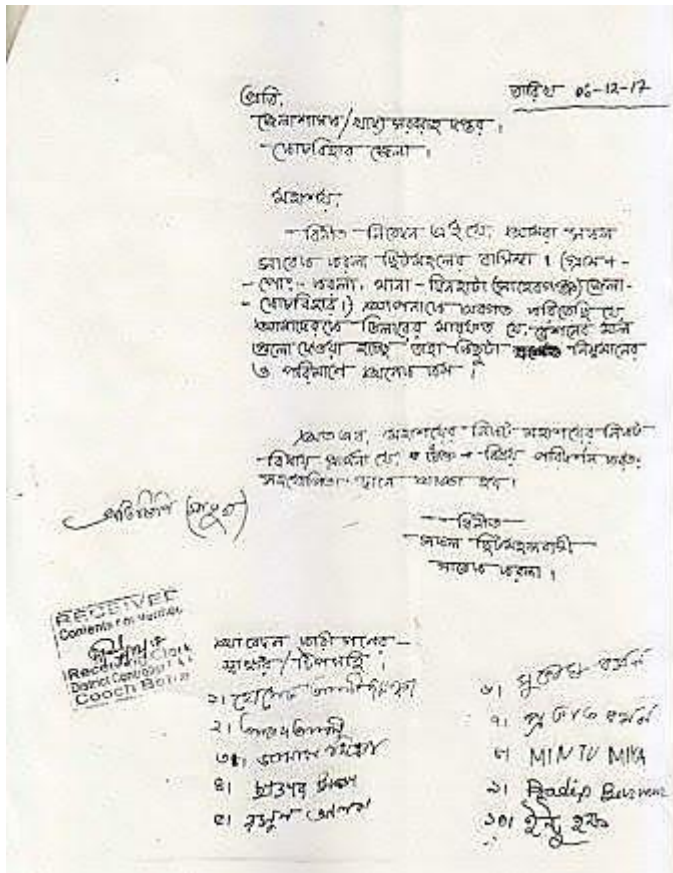 তারিখ 06-12-17
প্রতি,
জেলাশাসক/খাদ্য সরবরাহ দপ্তর।
কোচবিহার জেলা।
মহাশয়,
বিনীত নিবেদন এই যে, আমরা সকল
সাবেক করলা ছিটমহলের বাসিন্দা। (গ্রাম+
পোঃ- করলা, থানা- দিনহাটা (সাহেবগঞ্জ) জেলা-
কোচবিহার।) আপনাকে অবগত করিতেছি যে,
আমাদেরকে ডিলারের মারফত যে, রেশনের মাল
গুলো দেওয়া হচ্ছে তাহা কিছুটা নিম্নমানের
ও পরিমাণে অনেক কম।
অতএব, মহাশয়ের নিকট মহাশয়ের নিকট
বিনীত প্রার্থনা যে, উক্ত বিষয় পরিদর্শন করত:
সহযোগিতা দানে আজ্ঞা হয়।
প্রতিলিপি
বিনীত
সকল ছিটমহলবাসী
সাবেক করলা।
RECEIVED
Contents not Verified
Receiving Clerk
District Controller
Cooch Behar
আবেদন কারী গনের
স্বাক্ষর/টিপসহি।
১।
২।
৩।
৪।
৫।
৬। বর্মন
৭। বর্মন
৮। MINTU MIYA
৯। Pradip Burman
১০। হক